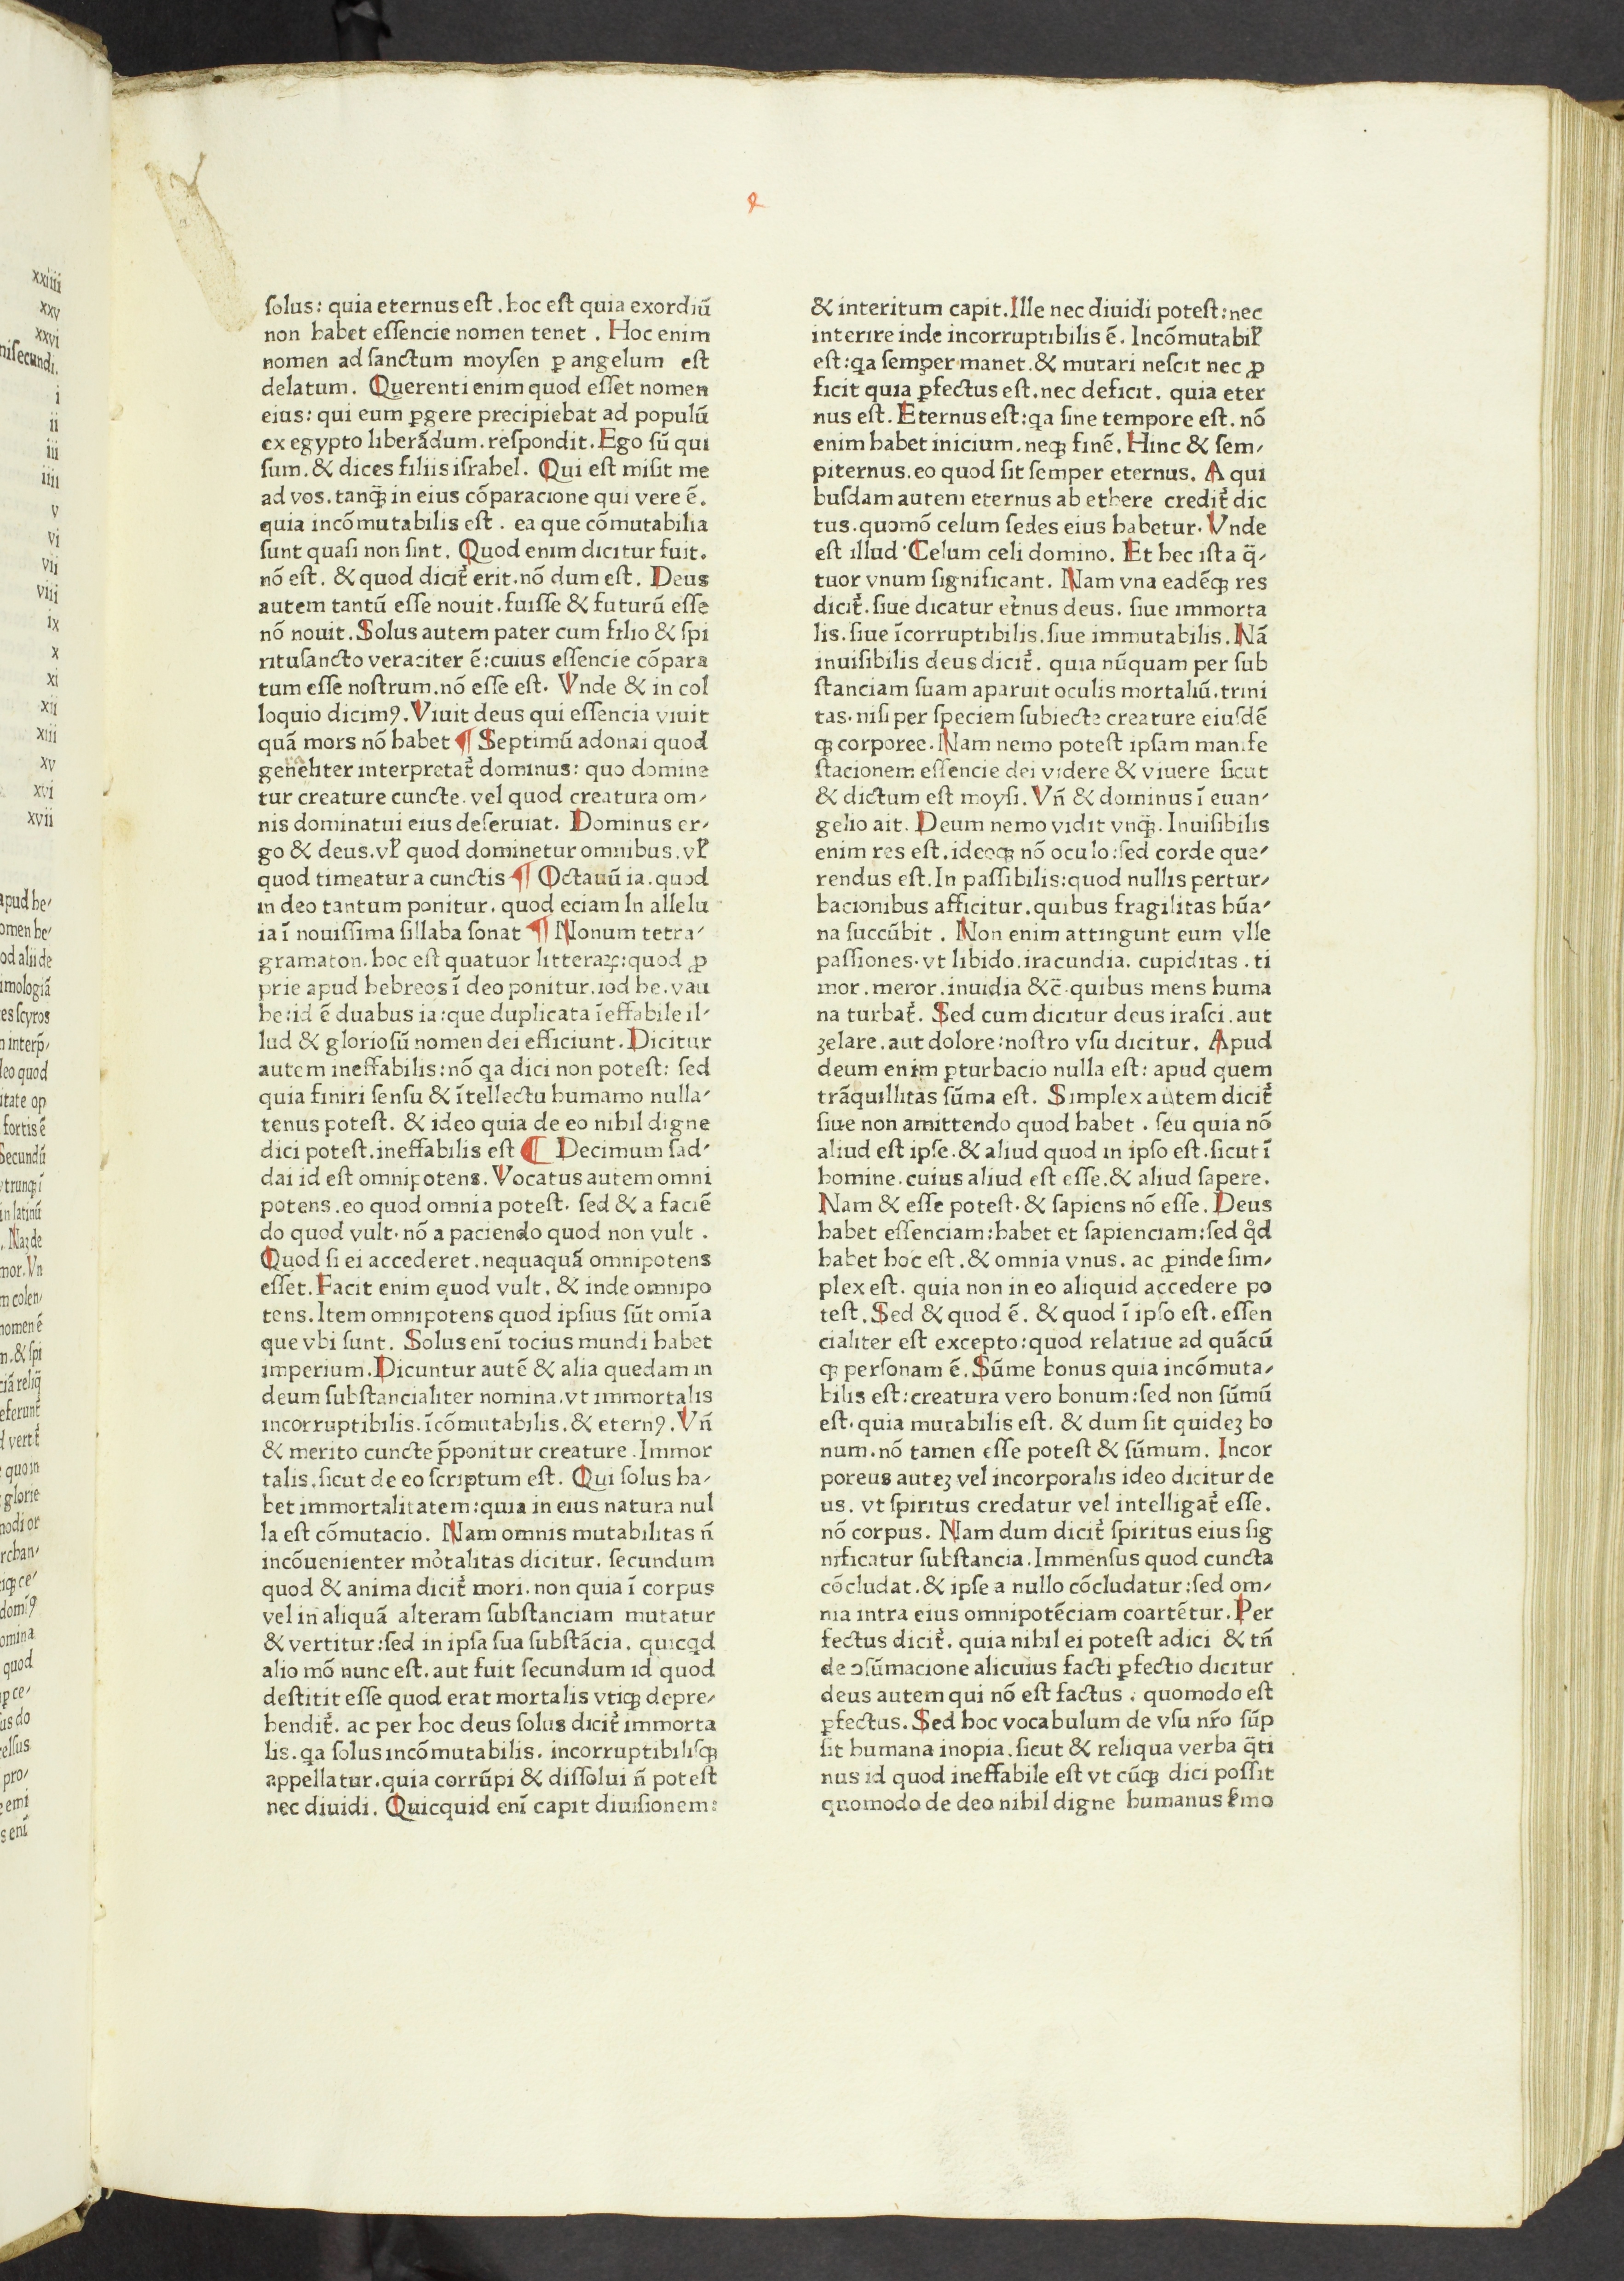 xxiiii
xxv
xxvi
niſecundi.
i
ii
iii
iiii
v
vi
vii
viii
ix
x
xi
xii
xiii
xv
xvi
xvii
apud he⸗
omen he⸗
od alii de
imologiã
es ſcyros
leo quod
itate op
fortis ẽ
Secundũ
in latinũ
mor. Vn
m colen⸗
nomen ẽ
n. & ſpi
quo in
glorie
modi or
rchan⸗
omina
quod
us do
celſus
pro⸗
s enĩ
2
ſolus: quia eternus eſt. hoc eſt quia exordiũ
non habet eſſencie nomen tenet. Hoc enim
nomen ad ſanctum moyſen ꝑ angelum eſt
delatum. Querenti enim quod eſſet nomen
eius: qui eum ꝑgere precipiebat ad populũ
ex egypto liberãdum. reſpondit. Ego ſũ qui
ſum. & dices filiis iſrahel. Qui eſt miſit me
ad vos. tanq̃ in eius cõparacione qui vere ẽ.
quia incõmutabilis eſt. ea que cõmutabilia
ſunt quaſi non ſint. Quod enim dicitur fuit.
nõ eſt. & quod dicit᷑ erit. nõ dum eſt. Deus
autem tantũ eſſe nouit. fuiſſe & futurũ eſſe
nõ nouit. Solus autem pater cum filio & ſpi
rituſancto veraciter ẽ: cuius eſſencie cõpara
tum eſſe noſtrum. nõ eſſe eſt. Vnde & in col
loquio dicimꝰ. Viuit deus qui eſſencia viuit
quã mors nõ habet ¶ Septimũ adonai quod
generaliter interpretat᷑ dominus: quo domine
tur creature cuncte. vel quod creatura om⸗
nis dominatui eius deſeruiat. Dominus er⸗
go & deus. vꝉ quod dominetur omnibus. vꝉ
quod timeatur a cunctis ¶ Octauũ ia. quod
in deo tantum ponitur. quod eciam In allelu
ia ĩ nouiſſima ſillaba ſonat ¶ Nonum tetra⸗
gramaton. hoc eſt quatuor litteraꝝ: quod ꝓ
prie apud hebreos ĩ deo ponitur. iod he. vau
he: id ẽ duabus ia: que duplicata ĩeffabile il⸗
lud & glorioſũ nomen dei efficiunt. Dicitur
autem ineffabilis: nõ qa dici non poteſt: ſed
quia finiri ſenſu & ĩtellectu humamo nulla⸗
tenus poteſt. & ideo quia de eo nihil digne
dici poteſt. ineffabilis eſt ¶ Decimum ſad⸗
dai id eſt omnipotens. Vocatus autem omni
potens. eo quod omnia poteſt. ſed & a faciẽ
do quod vult. nõ a paciendo quod non vult.
Quod ſi ei accederet. nequaquã omnipotens
eſſet. Facit enim quod vult. & inde omnipo
tens. Item omnipotens quod ipſius ſũt omĩa
que vbi ſunt. Solus enĩ tocius mundi habet
imperium. Dicuntur autẽ & alia quedam in
deum ſubſtancialiter nomina. vt immortalis
incorruptibilis. ĩcõmutabilis. & eternꝰ. Vñ
& merito cuncte p̃ponitur creature. Immor
talis. ſicut de eo ſcriptum eſt. Qui ſolus ha⸗
bet immortalitatem: quia in eius natura nul
la eſt cõmutacio. Nam omnis mutabilitas ñ
incõuenienter mo᷑talitas dicitur. ſecundum
quod & anima dicit᷑ mori. non quia ĩ corpus
vel in aliquã alteram ſubſtanciam mutatur
& vertitur: ſed in ipſa ſua ſubſtãcia. quicqd
alio mõ nunc eſt. aut fuit ſecundum id quod
deſtitit eſſe quod erat mortalis vtiqꝫ depre⸗
hendit᷑. ac per hoc deus ſolus dicit᷑ immorta
lis. qa ſolus incõmutabilis. incorruptibiliſqꝫ
appellatur. quia corrũpi & diſſolui ñ poteſt
nec diuidi. Quicquid enĩ capit diuiſionem:
& interitum capit. Ille nec diuidi poteſt: nec
interire inde incorruptibilis ẽ. Incõmutabiꝉ
eſt: qa ſemper manet. & mutari neſcit nec ꝓ
ficit quia ꝑfectus eſt. nec deficit. quia eter
nus eſt. Eternus eſt: qa ſine tempore eſt. nõ
enim habet inicium. neqꝫ finẽ. Hinc & ſem⸗
piternus. eo quod ſit ſemper eternus. A qui
buſdam autem eternus ab ethere credit᷑ dic
tus. quomõ celum ſedes eius habetur. Vnde
eſt illud. Celum celi domino. Et hec iſta q̃⸗
tuor vnum ſignificant. Nam vna eadẽqꝫ res
dicit᷑. ſiue dicatur et᷑nus deus. ſiue immorta
lis. ſiue ĩcorruptibilis. ſiue immutabilis. Nã
inuiſibilis deus dicit᷑. quia nũquam per ſub
ſtanciam ſuam aparuit oculis mortaliũ. trini
tas. niſi per ſpeciem ſubiecte creature eiuſdẽ
qꝫ corporee. Nam nemo poteſt ipſam manife
ſtacionem eſſencie dei videre & viuere ſicut
& dictum eſt moyſi. Vñ & dominus ĩ euan⸗
gelio ait. Deum nemo vidit vnq̃. Inuiſibilis
enim res eſt. ideoqꝫ nõ oculo: ſed corde que⸗
rendus eſt. In paſſibilis: quod nullis pertur⸗
bacionibus afficitur. quibus fragilitas hũa⸗
na ſuccũbit. Non enim attingunt eum vlle
paſſiones. vt libido. iracundia. cupiditas. ti
mor. meror. inuidia &c̃. quibus mens huma
na turbat᷑. Sed cum dicitur deus iraſci. aut
ʒelare. aut dolore: noſtro vſu dicitur. Apud
deum enim ꝑturbacio nulla eſt: apud quem
trãquillitas ſũma eſt. Simplex autem dicit᷑
ſiue non amittendo quod habet. ſeu quia nõ
aliud eſt ipſe. & aliud quod in ipſo eſt. ſicut ĩ
homine. cuius aliud eſt eſſe. & aliud ſapere.
Nam & eſſe poteſt. & ſapiens nõ eſſe. Deus
habet eſſenciam: habet et ſapienciam: ſed qͦd
habet hoc eſt. & omnia vnus. ac ꝓinde ſim⸗
plex eſt. quia non in eo aliquid accedere po
teſt. Sed & quod ẽ. & quod ĩ ipſo eſt. eſſen
cialiter eſt excepto: quod relatiue ad quãcũ
qꝫ perſonam ẽ. Sũme bonus quia incõmuta⸗
bilis eſt: creatura vero bonum: ſed non ſũmũ
eſt. quia mutabilis eſt. & dum ſit quideʒ bo
num. nõ tamen eſſe poteſt & ſũmum. Incor
poreus auteʒ vel incorporalis ideo dicitur de
us. vt ſpiritus credatur vel intelligat᷑ eſſe.
nõ corpus. Nam dum dicit᷑ ſpiritus eius ſig
nificatur ſubſtancia. Immenſus quod cuncta
cõcludat. & ipſe a nullo cõcludatur: ſed om⸗
nia intra eius omnipotẽciam coartẽtur. Per
fectus dicit᷑. quia nihil ei poteſt adici & tñ
de ꝯſũmacione alicuius facti ꝑfectio dicitur
deus autem qui nõ eſt factus. quomodo eſt
ꝑfectus. Sed hoc vocabulum de vſu nr̃o ſũp
ſit humana inopia. ſicut & reliqua verba q̃ti
nus id quod ineffabile eſt vt cũqꝫ dici poſſit
quomodo de deo nihil digne humanus ẜmo